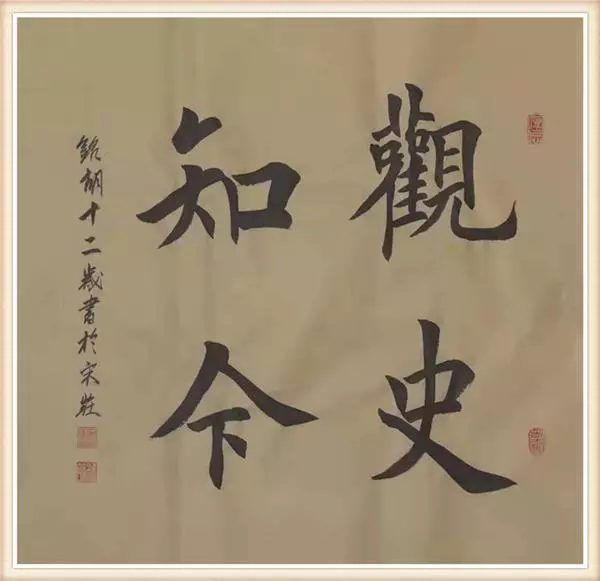 觀史
知今
銘朗十二歲書於宋莊